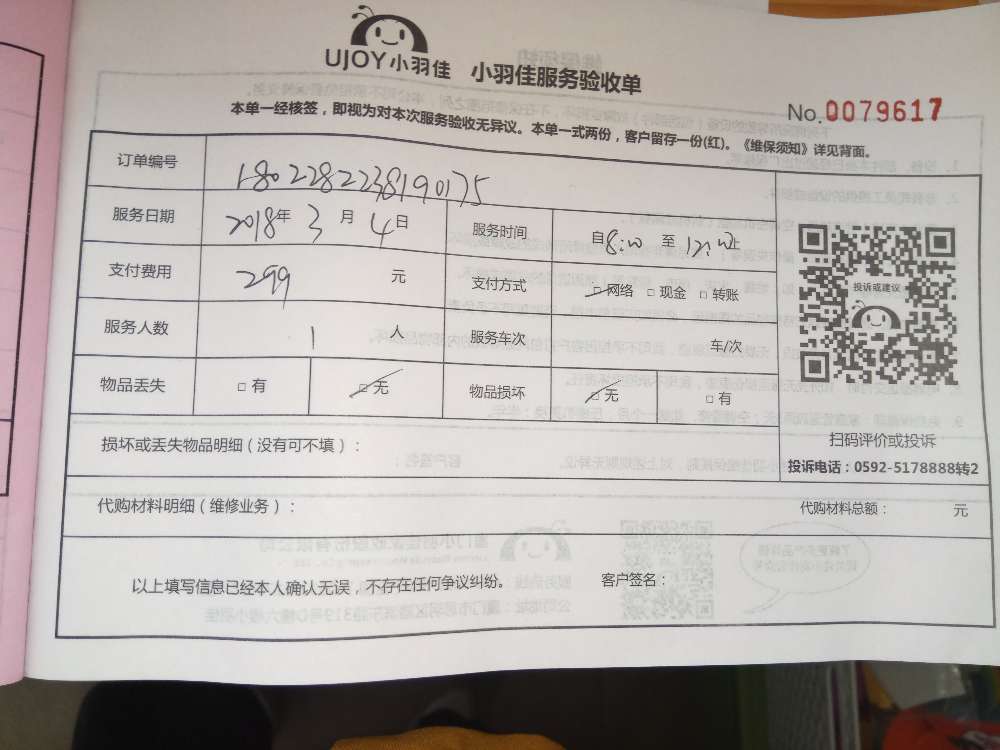 UJOY小羽佳 小羽佳服务验收单
No.0079617
本单一经核签，即视为对本次服务验收无异议。本单一式两份，客户留存一份(红)。《维保须知》详见背面。
订单编号 1802282238190175
服务日期 2018年 3 月 4 日 服务时间 自8:00 至 12:00止
支付费用 299 元 支付方式 □网络 □现金 □转账
投诉或建议
服务人数 1 人 服务车次 车/次
物品丢失 □有 □无 物品损坏 □无 □有
损坏或丢失物品明细（没有可不填）：
扫码评价或投诉
投诉电话：0592-5178888转2
代购材料明细（维修业务）： 代购材料总额： 元
以上填写信息已经本人确认无误，不存在任何争议纠纷。 客户签名：